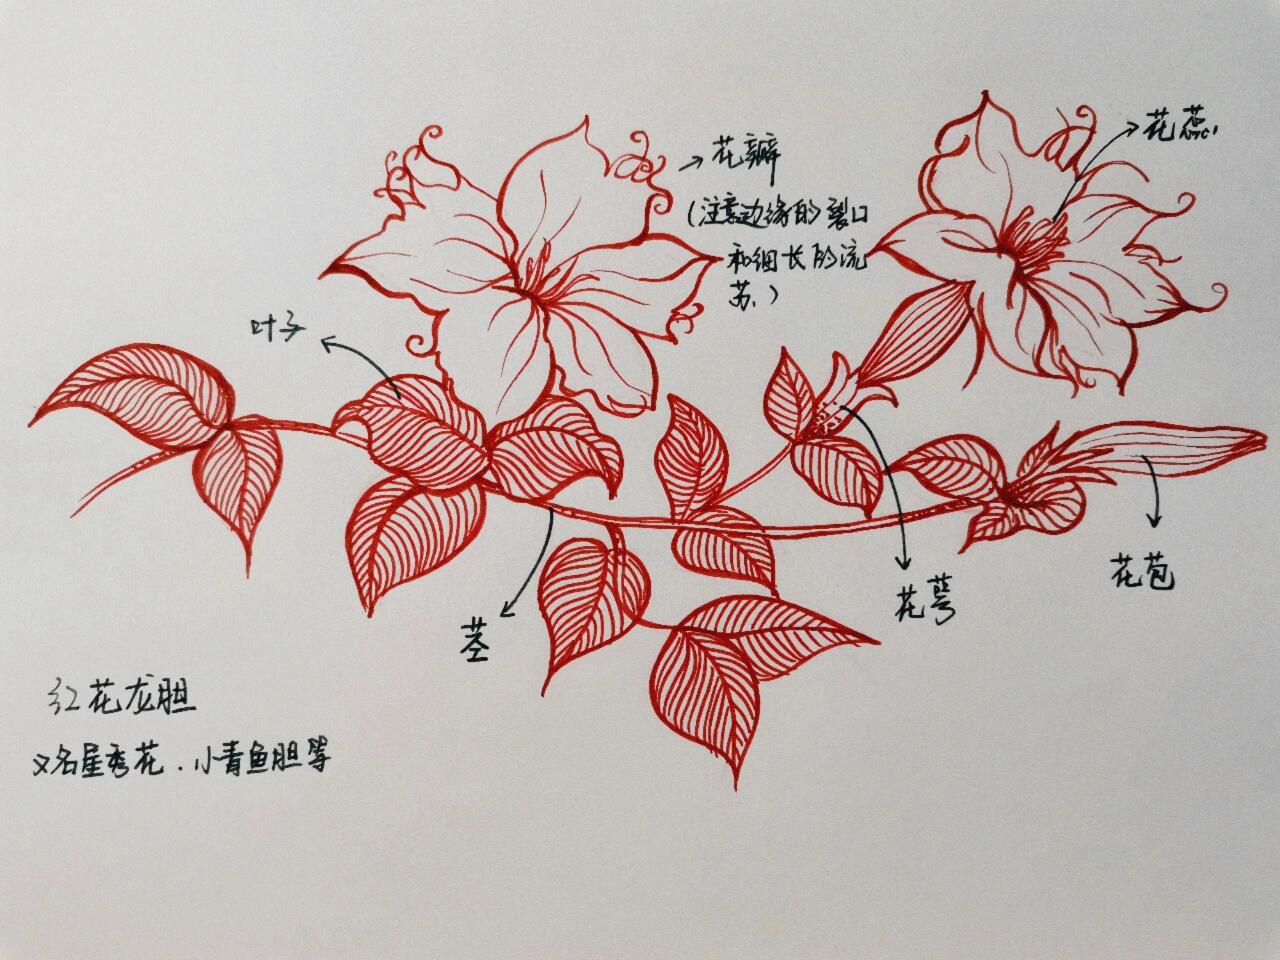 花蕊
花瓣
(注意边缘的裂口
和细长的流
苏.)
叶子
花萼
花苞
茎
红花龙胆
又名星秀花.小青鱼胆等